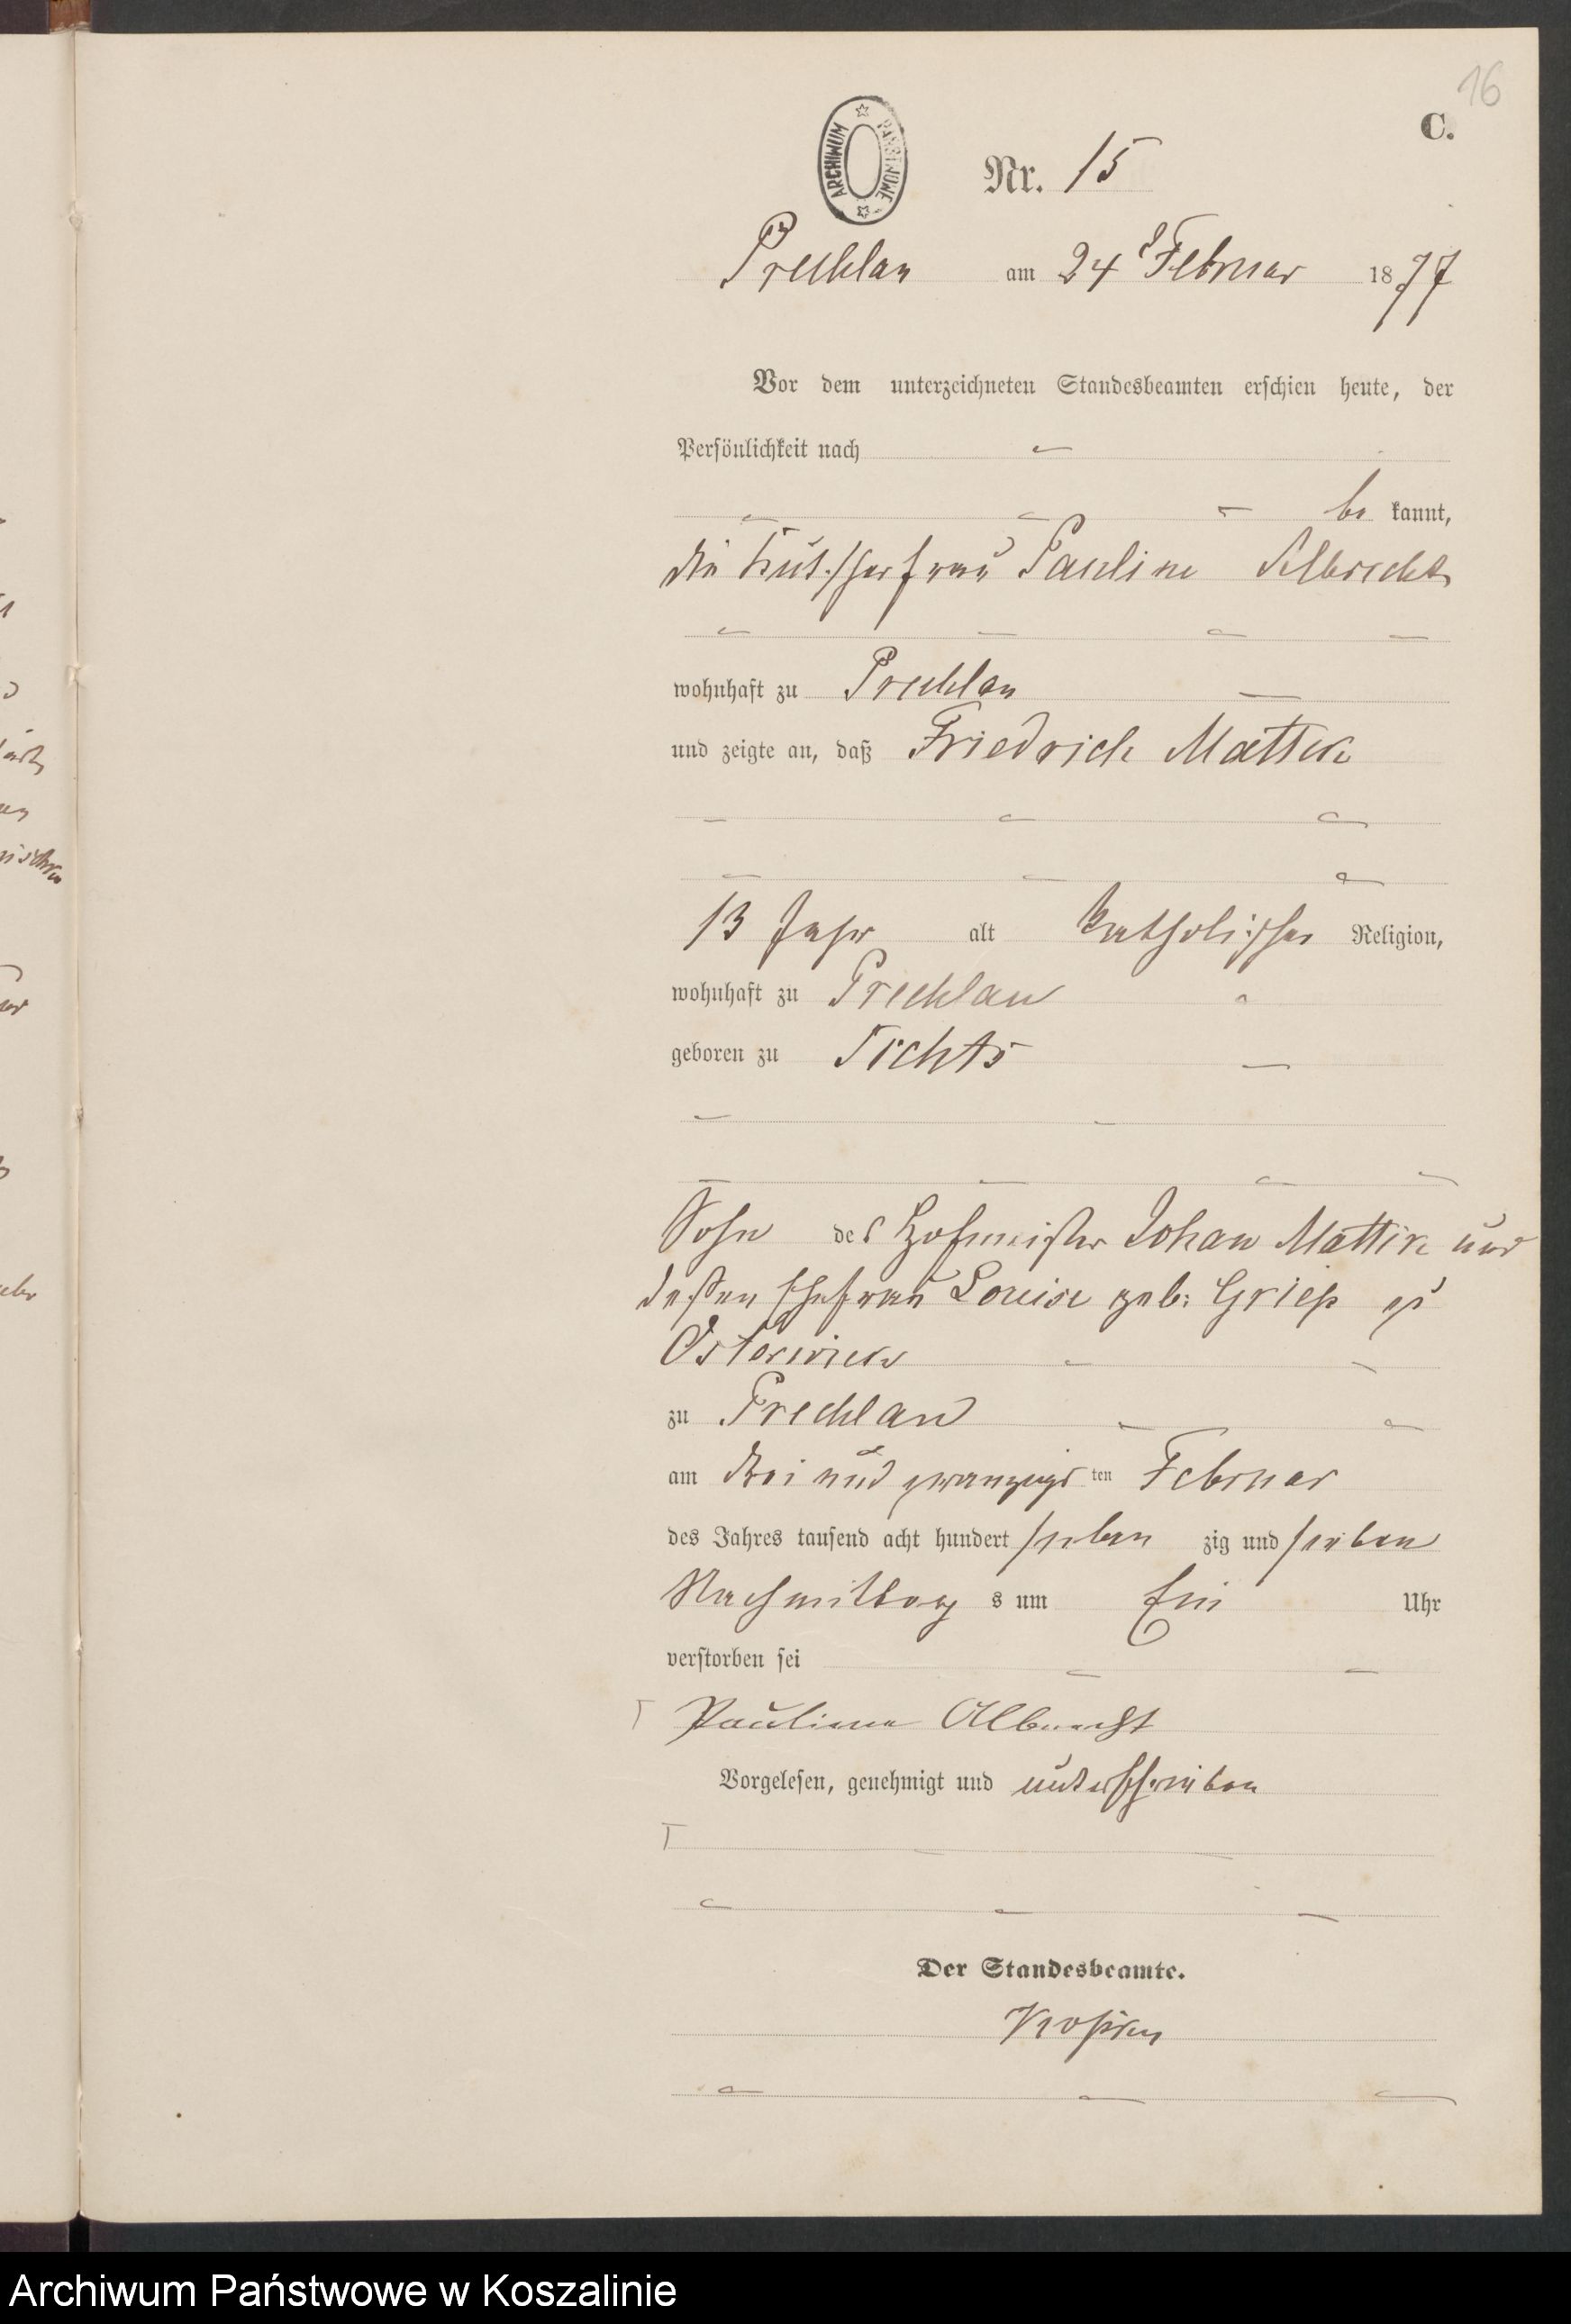 16
C.
ARCHIWUM PAŃSTWOWE
Nr. 15
Prechlau am 24 Februar 1877
Vor dem unterzeichneten Standesbeamten erschien heute, der
Persönlichkeit nach
be kannt,
die Kutscherfrau Pauline Albrecht
wohnhaft zu Prechlau
und zeigte an, daß Friedrich Mattek
13 Jahr alt katholischer Religion,
wohnhaft zu Prechlau
geboren zu
Sohn des Hofmeister Johan Mattik und
deßen Ehefrau Louise geb: Griep zu
Osterwick
zu Prechlau
am drei und zwanzigs ten Februar
des Jahres tausend acht hundert sieben zig und sieben
Nachmittag s um Ein Uhr
verstorben sei
Pauline Albrecht
Vorgelesen, genehmigt und unterschrieben
Der Standesbeamte.
Archiwum Państwowe w Koszalinie